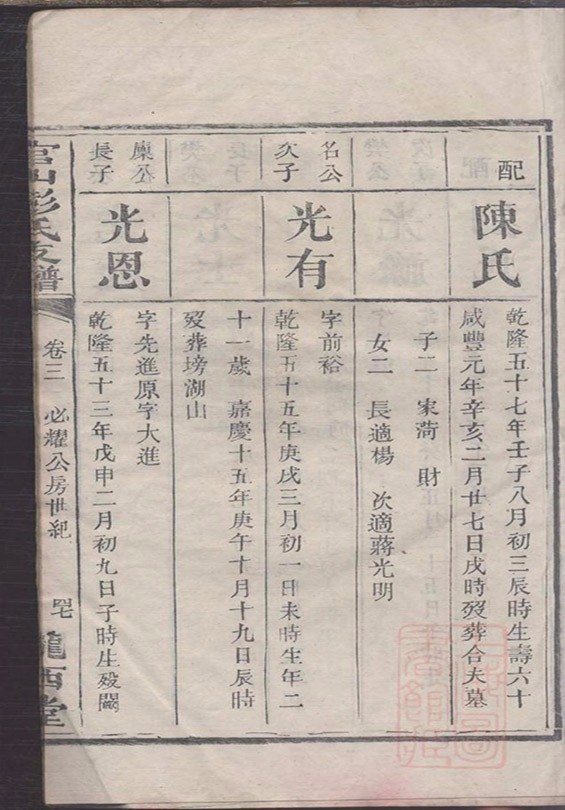 配
陳氏
乾隆五十七年壬子八月初三辰時生壽六十
咸豐元年辛亥二月廿七日戌時歿葬合夫墓
子二 家蒟 財
女二 長適楊 次適蔣光明
名公
次子
光有
字前裕
乾隆五十五年庚戌三月初一日未時生年二
十一歲 嘉慶十五年庚午十月十九日辰時
歿葬塝湖山
稟公
長子
光恩
字先進原字大進
乾隆五十三年戊申二月初九日子時生歿闕
官山彭氏支譜
卷三 必耀公房世紀 四七
隴西堂